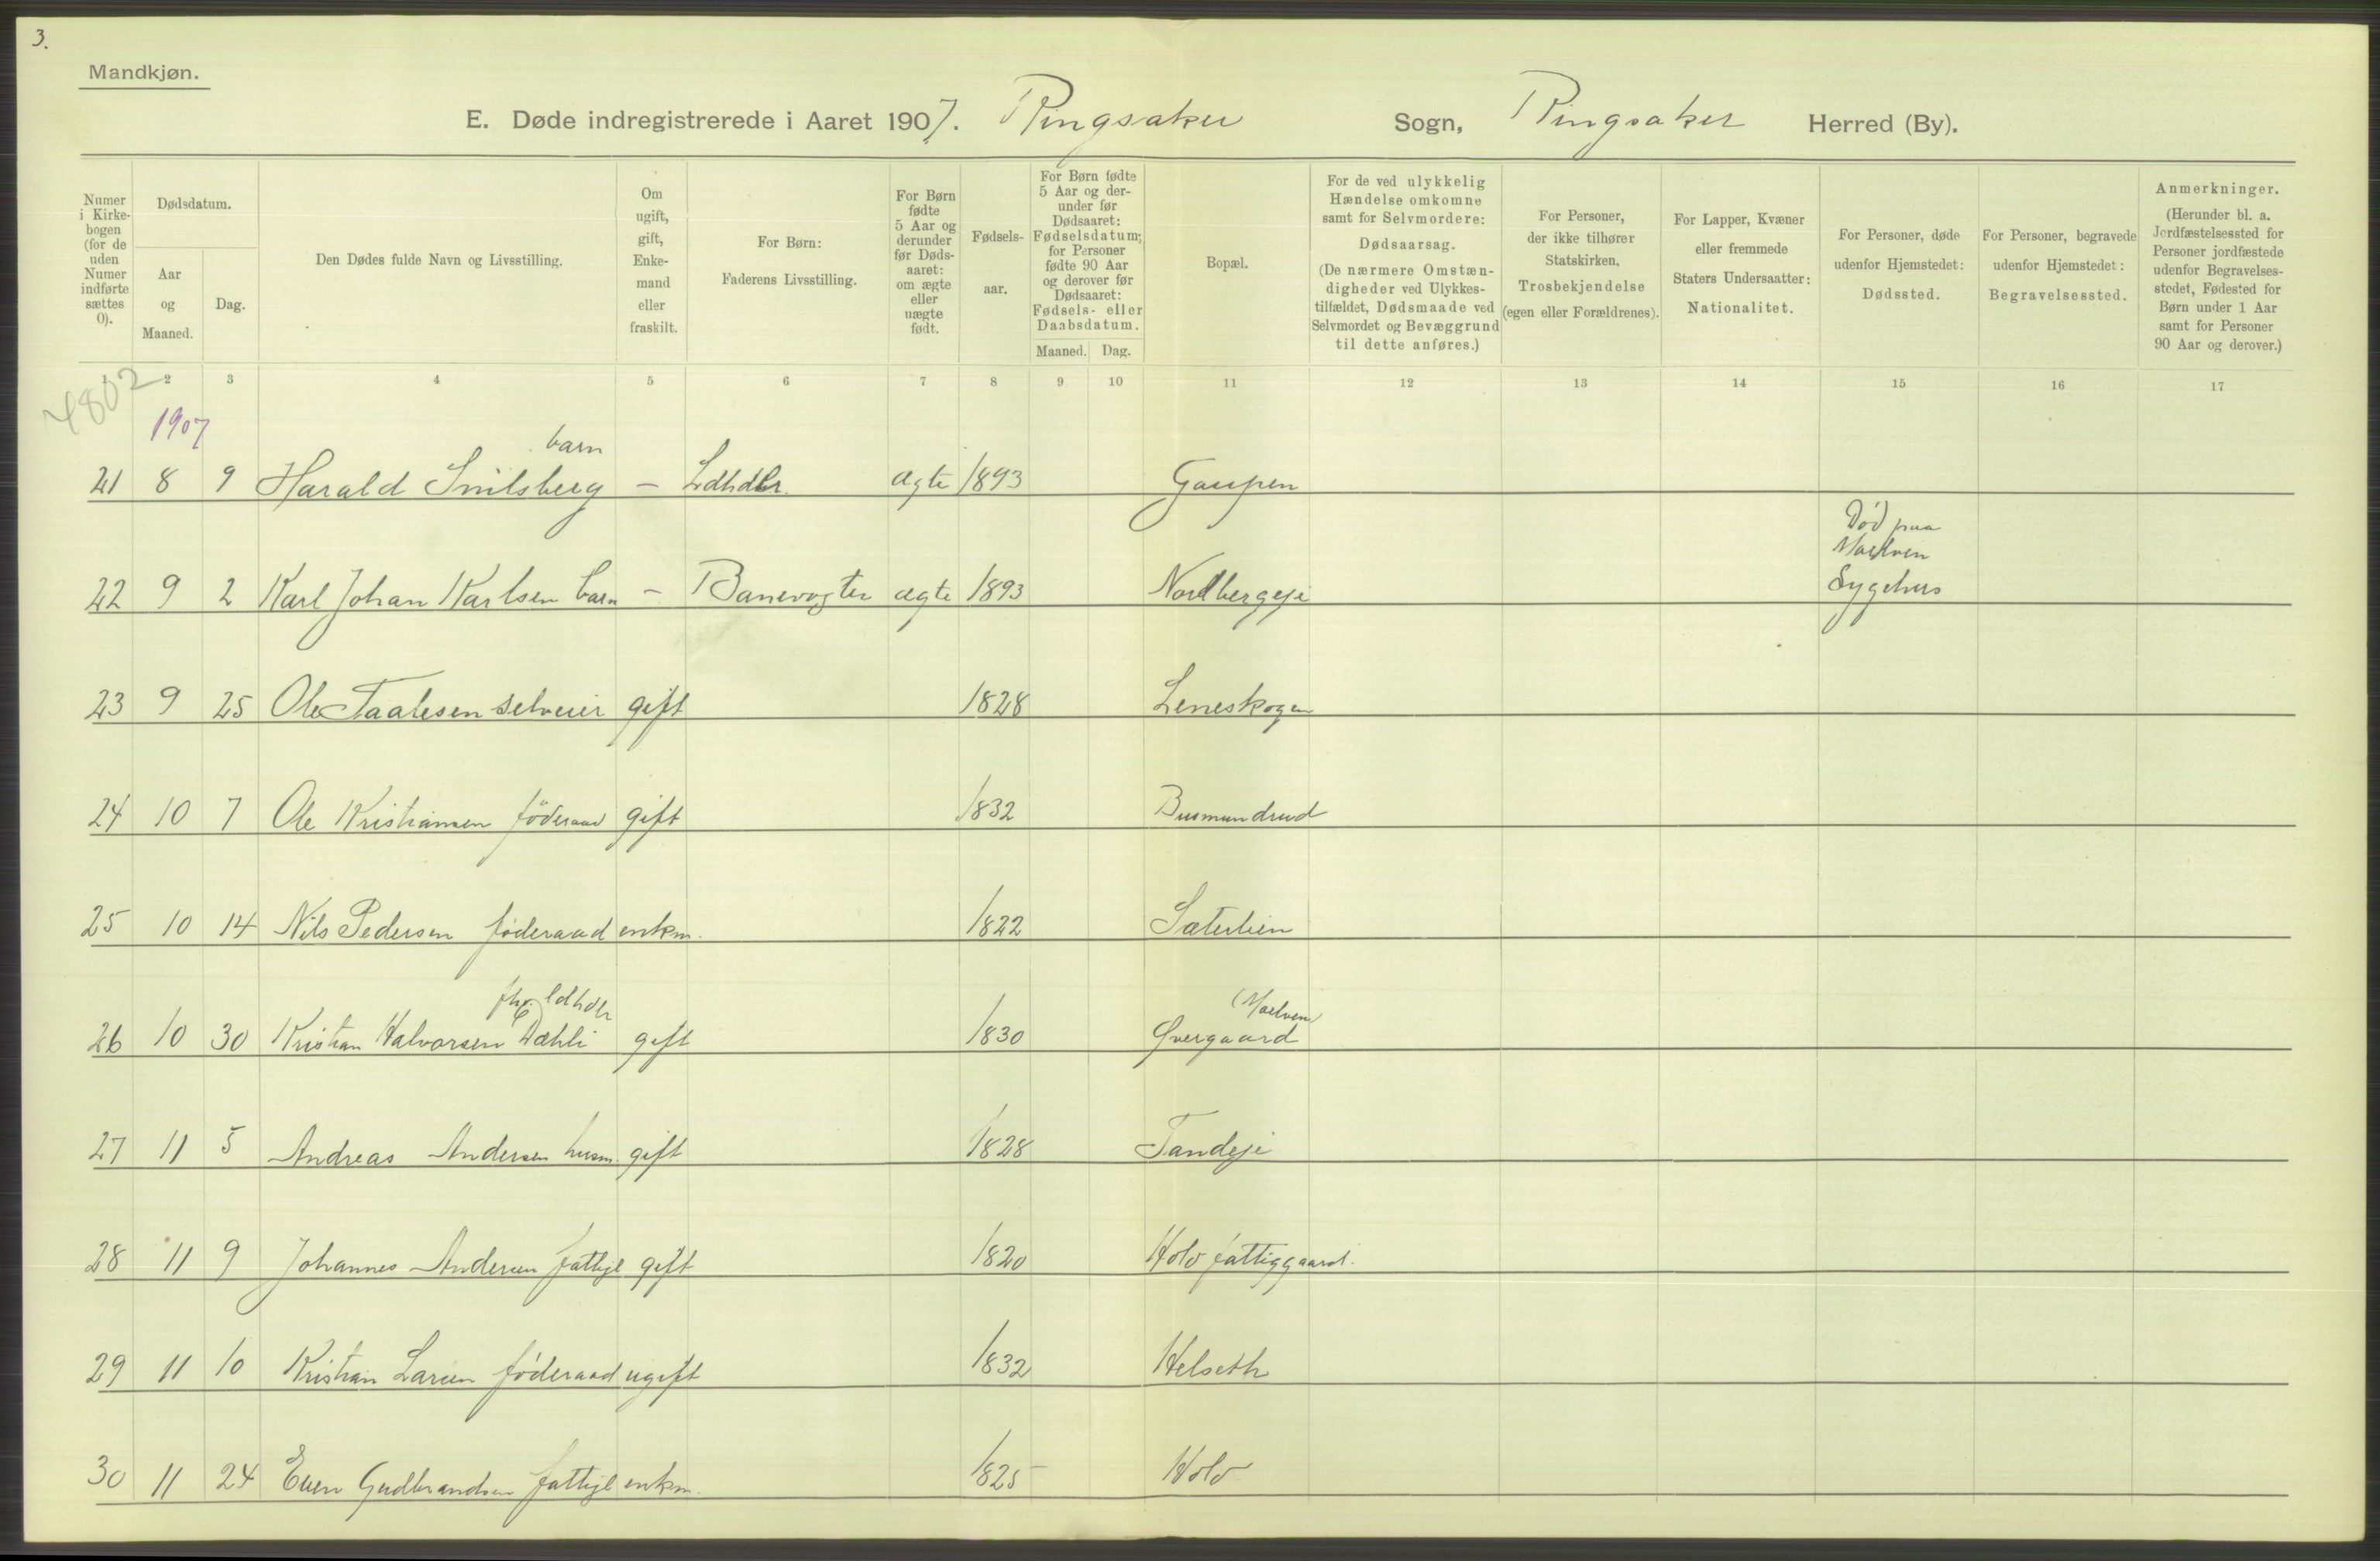 3.
Mandkjøn.
E. Døde indregistrerede i Aaret 1907. Ringsaker Sogn, Ringsaker Herred (By).
Numer i Kirkebogen (for de uden Numer indførte sættes 0).
Dødsdatum.
Aar og Maaned.
Dag.
Den Dødes fulde Navn og Livsstilling.
Om ugift, gift, Enkemand eller fraskilt.
For Børn: Faderens Livsstilling.
For Børn fødte 5 Aar og derunder før Dødsaaret: om ægte eller uægte født.
Fødselsaar.
For Børn fødte 5 Aar og derunder før Dødsaaret: Fødselsdatum; for Personer fødte 90 Aar og derover før Dødsaaret: Fødsels- eller Daabsdatum.
Maaned. Dag.
Bopæl.
For de ved ulykkelig Hændelse omkomne samt for Selvmordere: Dødsaarsag. (De nærmere Omstændigheder ved Ulykkestilfældet, Dødsmaade ved Selvmordet og Bevæggrund til dette anføres.)
For Personer, der ikke tilhører Statskirken, Trosbekjendelse (egen eller Forældrenes).
For Lapper, Kvæner eller fremmede Staters Undersaatter: Nationalitet.
For Personer, døde udenfor Hjemstedet: Dødssted.
For Personer, begravede udenfor Hjemstedet: Begravelsessted.
Anmerkninger. (Herunder bl. a. Jordfæstelsessted for Personer jordfæstede udenfor Begravelsesstedet, Fødested for Børn under 1 Aar samt for Personer 90 Aar og derover.)
1 2 3 4 5 6 7 8 9 10 11 12 13 14 15 16 17
4802
1907
barn
21 8 9 Harald Smilsberg - Ldhdlr. ægte 1893 Gaupen
Død paa
Moelven
22 9 2 Karl Johan Karlsen barn - Banevogter ægte 1893 Nordbergeje Sygehus
23 9 25 Ole Taalesen selveier gift 1828 Leneskogen
24 10 7 Ole Kristiansen föderaad gift 1832 Busmundrud
25 10 14 Nils Pedersen föderaad enkm. 1822 Sæterlien
fhv. ldhdlr (Moelven)
26 10 30 Kristian Halvorsen Dæhli gift 1830 Øvergaard
27 11 5 Andreas Andersen husm. gift 1828 Tandeje
28 11 9 Johannes Andersen fattigl gift 1820 Holo fattiggaard.
29 11 10 Kristian Larsen föderaad ugift 1832 Helseth
30 11 24 Even Gudbrandsen fattigl enkm. 1825 Holo